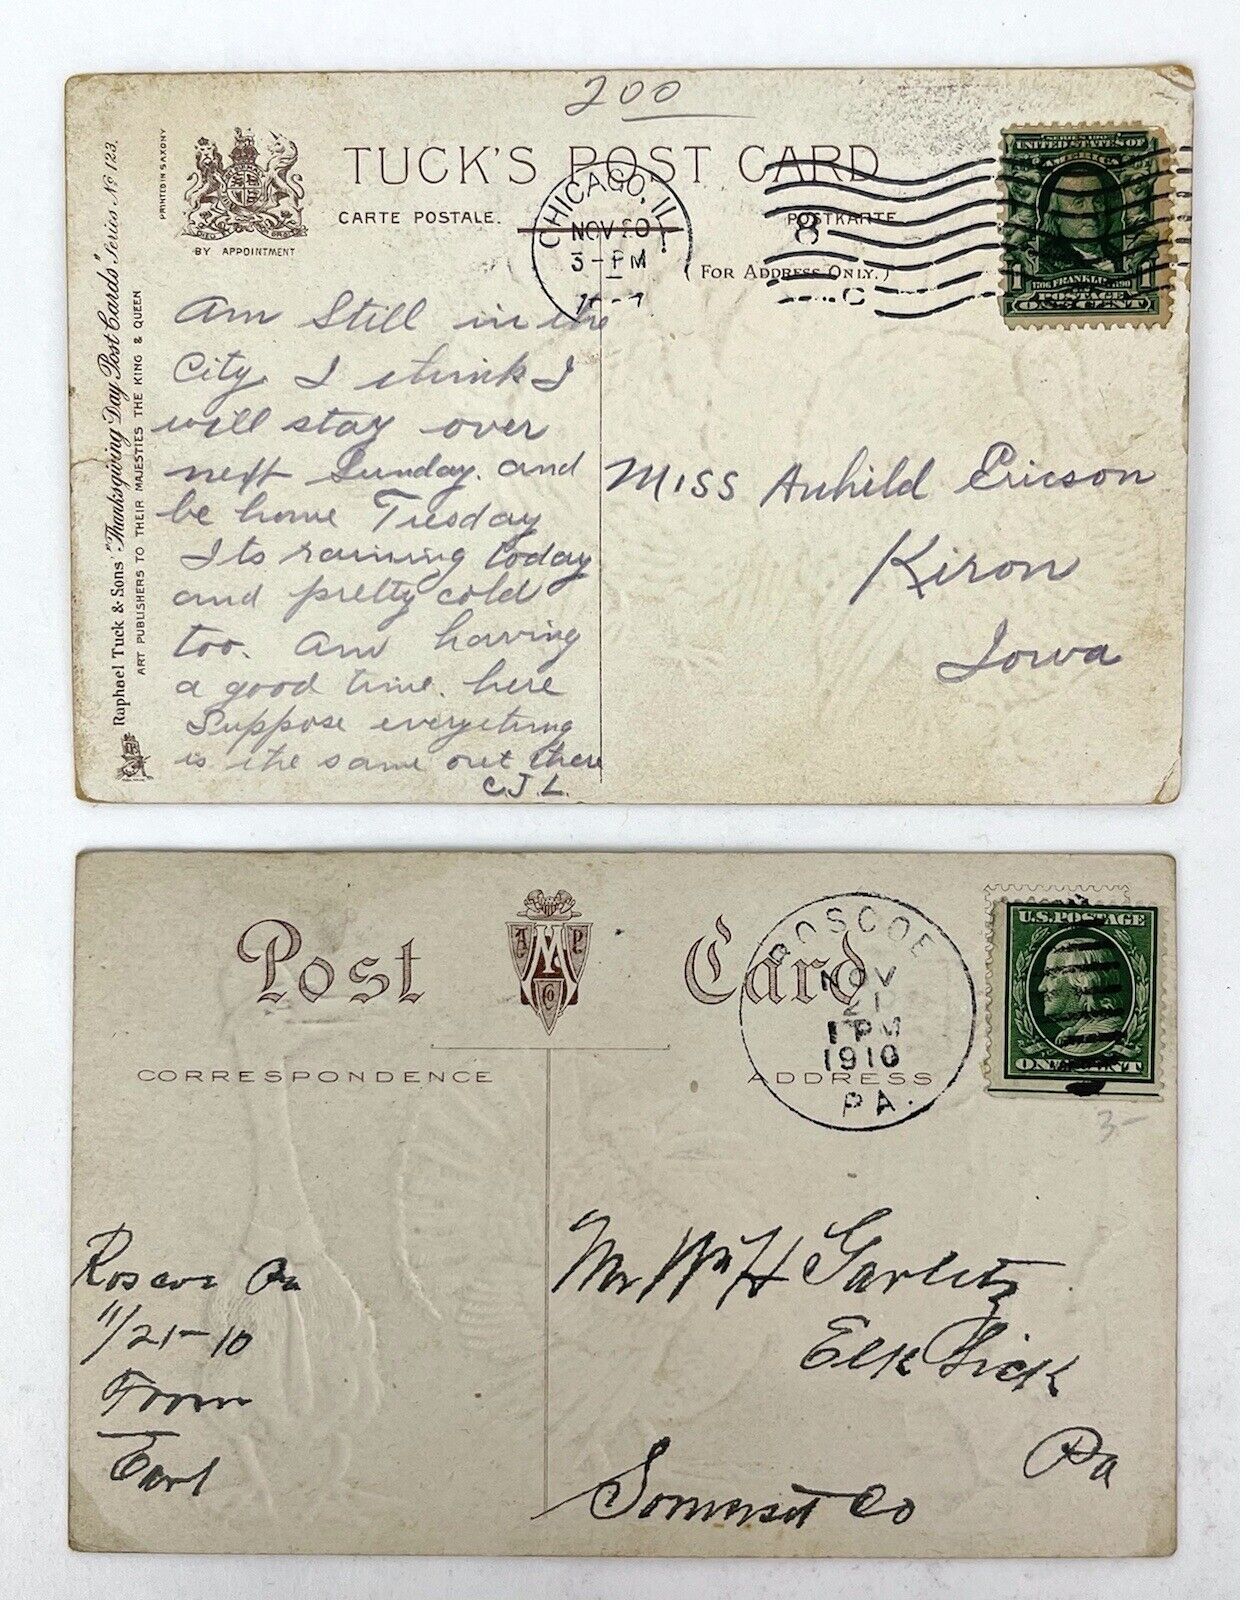 200
TUCK'S POST CARD
CARTE POSTALE.
POSTKARTE
(FOR ADDRESS ONLY.)
BY APPOINTMENT
PRINTED IN SAXONY
Raphael Tuck & Sons' "Thanksgiving Day Post Cards" Series No 123.
ART PUBLISHERS TO THEIR MAJESTIES THE KING & QUEEN
CHICAGO, ILL.
NOV 20
3-PM
8
C
SERIES 1902
UNITED STATES OF
AMERICA
1706 FRANKLIN 1790
POSTAGE
1 ONE CENT 1
Am Still in the
City. I think I
will stay over
next Sunday. and
be home Tuesday
Its raining today
and pretty cold
too. Am having
a good time. here
Suppose everything
is the same out there
C.J.L.
Miss Anhild Ericson
Kiron
Iowa
Post Card
A M P
CO
CORRESPONDENCE
ADDRESS
ROSCOE
NOV
21
1 PM
1910
PA.
U.S. POSTAGE
ONE CENT
3-
Roscoe Pa
11/21-10
From
Earl
Mr Wm H Garlitz
Elk Lick
Pa
Somerset Co